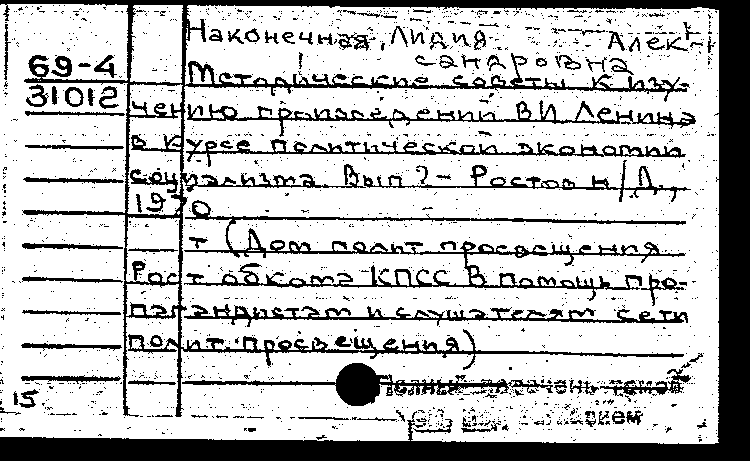 Наконечная, Лидия Алек-
сандровна
69-4
31012
Методические советы к изу-
чению произведений В.И. Ленина
в курсе политической экономии
социализма. Вып 2- Ростов н/Д.,
1970
т (Дом полит просвещения
Рост обкома КПСС В помощь про-
пагандистам и слушателям сети
полит. просвещения)
Полный перечень томов
15